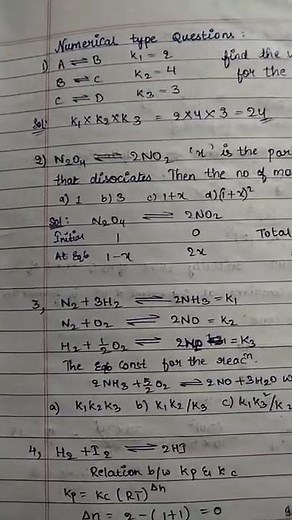 Numerical type Questions :
1) A ⇌ B K₁ = 2 find the
B ⇌ C K₂ = 4 for the
C ⇌ D K₃ = 3
Sol: K₁ x K₂ x K₃ = 2 x 4 x 3 = 24
2) N₂O₄ ⇌ 2NO₂ 'x' is the par
that disociates. Then the no of mo
a) 1 b) 3 c) 1+x d) (1+x)²
Sol: N₂O₄ ⇌ 2NO₂
Initial 1 0 Total
At Eqb 1-x 2x
3, N₂ + 3H₂ ⇌ 2NH₃ = K₁
N₂ + O₂ ⇌ 2NO = K₂
H₂ + ½O₂ ⇌ = K₃
The Eqb Const for the reacⁿ.
2NH₃ + 5/2 O₂ ⇌ 2NO + 3H₂O
a) K₁K₂K₃ b) K₁K₂/K₃ c) K₁K₃²/K₂
4, H₂ + I₂ ⇌ 2HI
Relation b/w Kp & Kc
Kp = Kc (RT)^Δn
Δn = 2 - (1+1) = 0